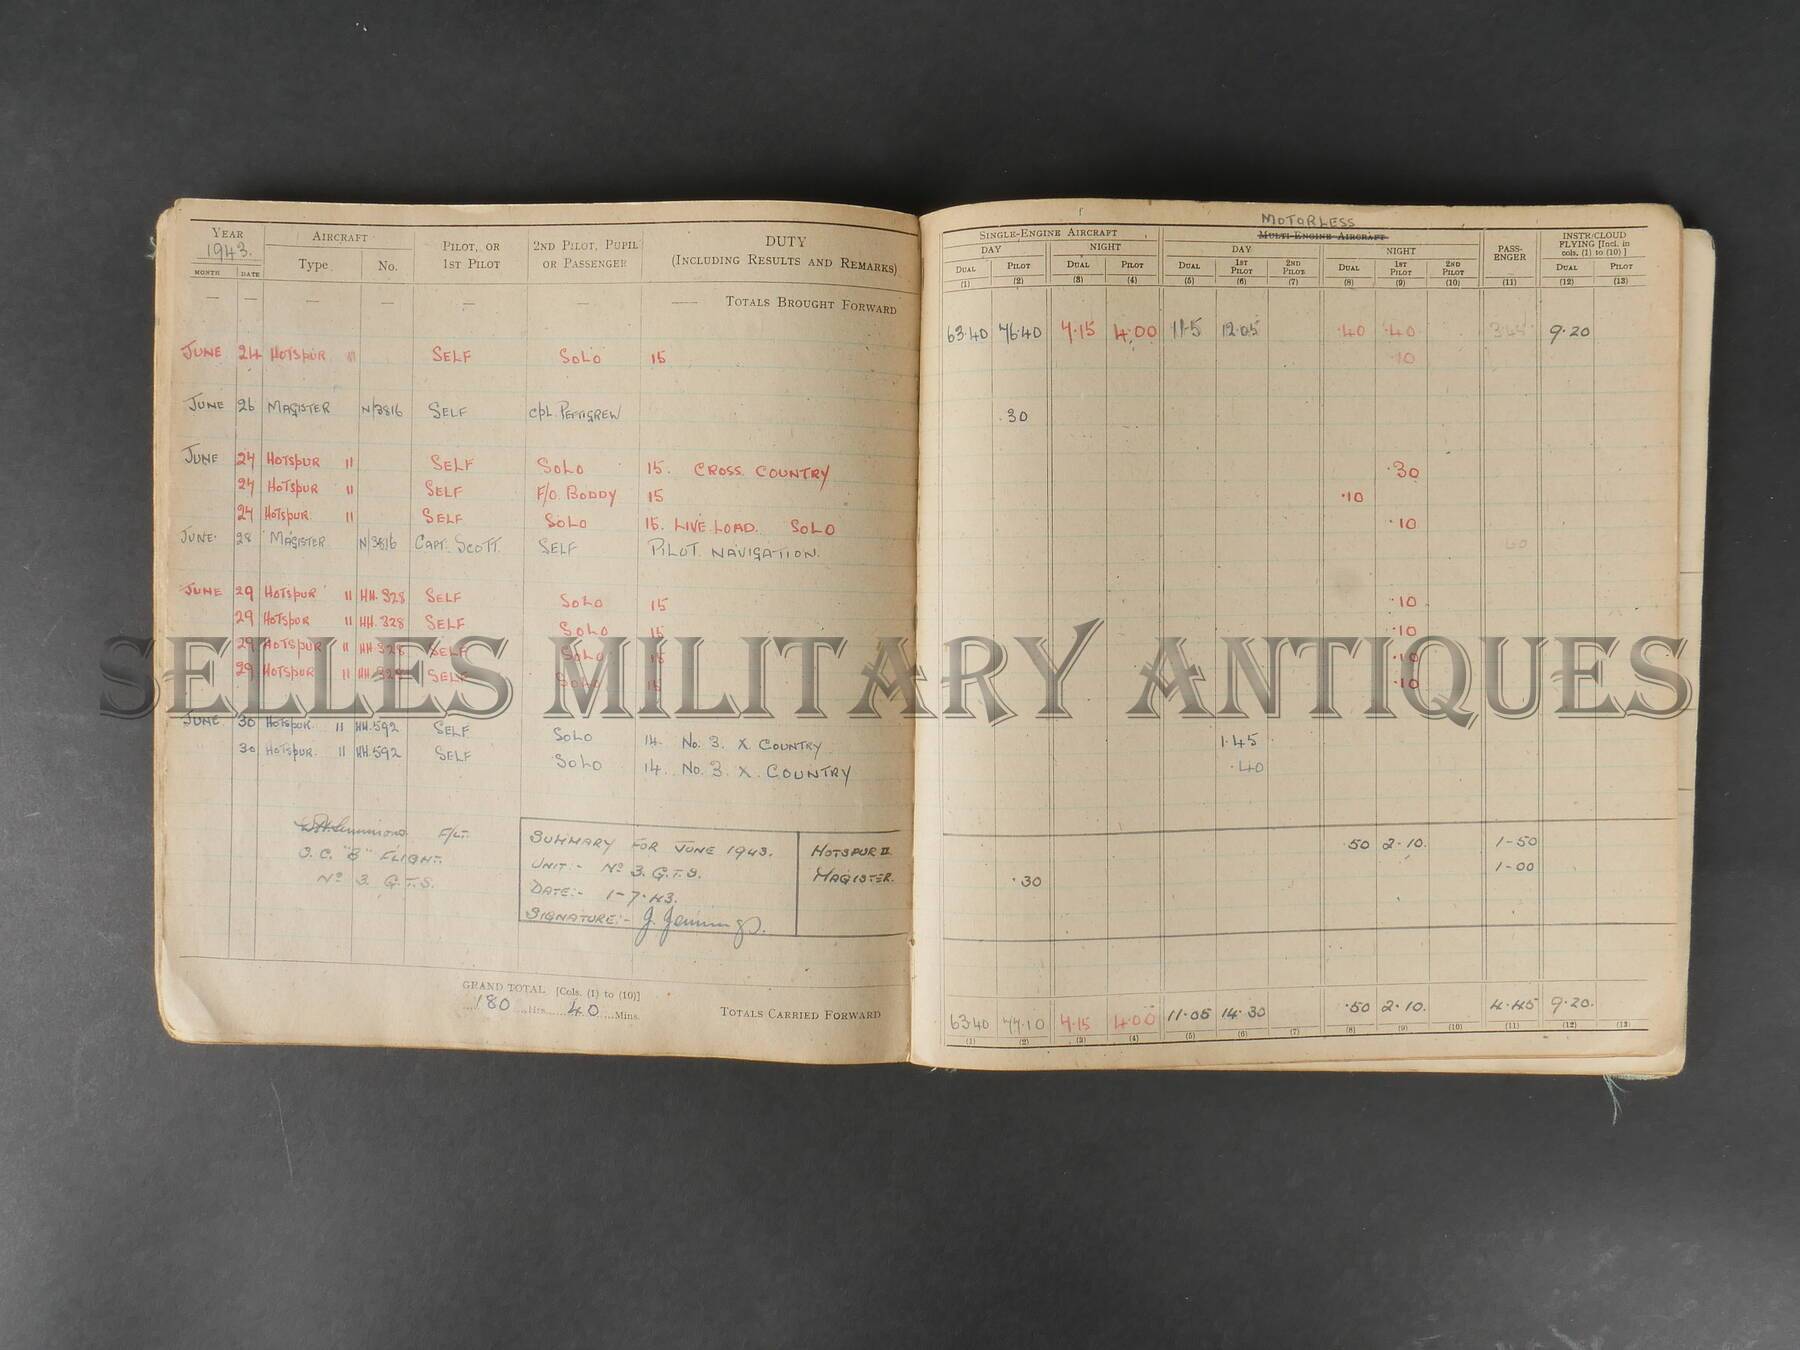 YEAR AIRCRAFT PILOT, OR 2ND PILOT, PUPIL DUTY
1943. Type No. 1ST PILOT OR PASSENGER (INCLUDING RESULTS AND REMARKS)
MONTH DATE
— — — — — — —— TOTALS BROUGHT FORWARD
JUNE 24 HOTSPUR II SELF SOLO 15
JUNE 26 MAGISTER N/3816 SELF CPL PETTIGREW
JUNE 24 HOTSPUR II SELF SOLO 15. CROSS COUNTRY
24 HOTSPUR II SELF F/O. BODDY 15
24 HOTSPUR II SELF SOLO 15. LIVE LOAD. SOLO
JUNE 28 MAGISTER N/3816 CAPT. SCOTT. SELF PILOT NAVIGATION.
JUNE 29 HOTSPUR II HH.328 SELF SOLO 15
29 HOTSPUR II HH.328 SELF SOLO 15
29 HOTSPUR II HH.328 SELF SOLO 15
29 HOTSPUR II HH.328 SELF SOLO 15
JUNE 30 HOTSPUR II HH.592 SELF SOLO 14. No. 3. X COUNTRY
30 HOTSPUR. II HH.592 SELF SOLO 14. No. 3. X. COUNTRY
F/LT.
O.C. "B" FLIGHT.
Nº 3 G.T.S.
SUMMARY FOR JUNE 1943. HOTSPUR II
UNIT:- Nº 3. G.T.S. MAGISTER.
DATE:- 1-7-43.
SIGNATURE:- J. Jennings.
GRAND TOTAL [Cols. (1) to (10)]
180 Hrs. 40 Mins. TOTALS CARRIED FORWARD
MOTORLESS
SINGLE-ENGINE AIRCRAFT MULTI-ENGINE AIRCRAFT PASS-ENGER INSTR/CLOUD FLYING [Incl. in cols. (1) to (10)]
DAY NIGHT DAY NIGHT
DUAL PILOT DUAL PILOT DUAL 1ST PILOT 2ND PILOT DUAL 1ST PILOT 2ND PILOT DUAL PILOT
(1) (2) (3) (4) (5) (6) (7) (8) (9) (10) (11) (12) (13)
63.40 76.40 7.15 4.00 11.5 12.05 .40 .40 9.20
.10
.30
.30
.10
.10
.10
.10
.10
.10
1.45
.40
.50 2.10. 1-50
.30 1-00
63.40 77.10 7.15 4.00 11.05 14.30 .50 2.10. 4.45 9.20.
(1) (2) (3) (4) (5) (6) (7) (8) (9) (10) (11) (12) (13)
SELLES MILITARY ANTIQUES